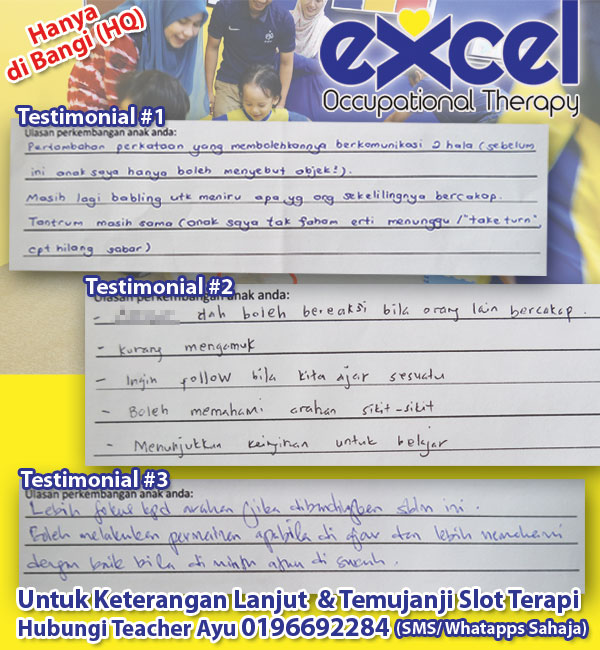 Hanya
di Bangi (HQ)
excel
Occupational Therapy
Testimonial #1
Ulasan perkembangan anak anda:
Pertambahan perkataan yang membolehkannya berkomunikasi 2 hala (sebelum
ini anak saya hanya boleh menyebut objek!).
Masih lagi babling utk meniru apa yg org sekelilingnya bercakap.
Tantrum masih sama (anak saya tak faham erti menunggu / "take turn",
cpt hilang sabar)
Testimonial #2
Ulasan perkembangan anak anda:
- dah boleh bereaksi bila orang lain bercakap.
- Kurang mengamuk
- Ingin follow bila kita ajar sesuatu
- Boleh memahami arahan sikit-sikit
- Menunjukkan keinginan untuk belajar
Testimonial #3
Ulasan perkembangan anak anda:
Lebih fokus kpd arahan (jika dibandingkan sblm ini.
Boleh melakukan permainan apabila di ajar dan lebih memahami
dengan baik bila di minta atau di suruh.
Untuk Keterangan Lanjut & Temujanji Slot Terapi
Hubungi Teacher Ayu 0196692284 (SMS/Whatapps Sahaja)